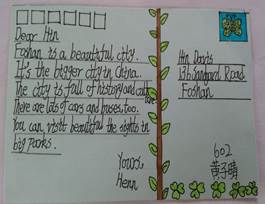 Dear Htn
Foshan is a beautiful city.
It's the bigger city in China.
The city is full of history and
There are lots of cars and buses, too.
You can visit beautiful the sights in
big parks.
Yours,
Henn
Htn Davis
136 Sandford Road
Foshan
602
黄子晴